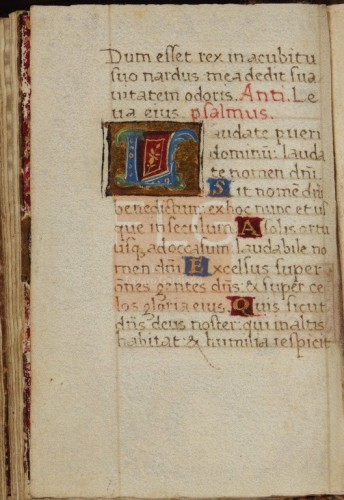 Dum esset rex in acubitu
suo nardus mea dedit sua
uitatem odoris. Anti. Le
ua eius psalmus.
Laudate pueri
dominū: lauda
te nomen dn̄i.
Sit nomē dn̄i
benedictum: ex hoc nunc et us
que in seculum. A solis ortu
usq; ad occasum: laudabile no
men dn̄i. Excelsus super
om̄es gentes dn̄s: & super ce
los gloria eius. Quis sicut
dn̄s deus noster: qui in altis
habitat: & humilia respicit